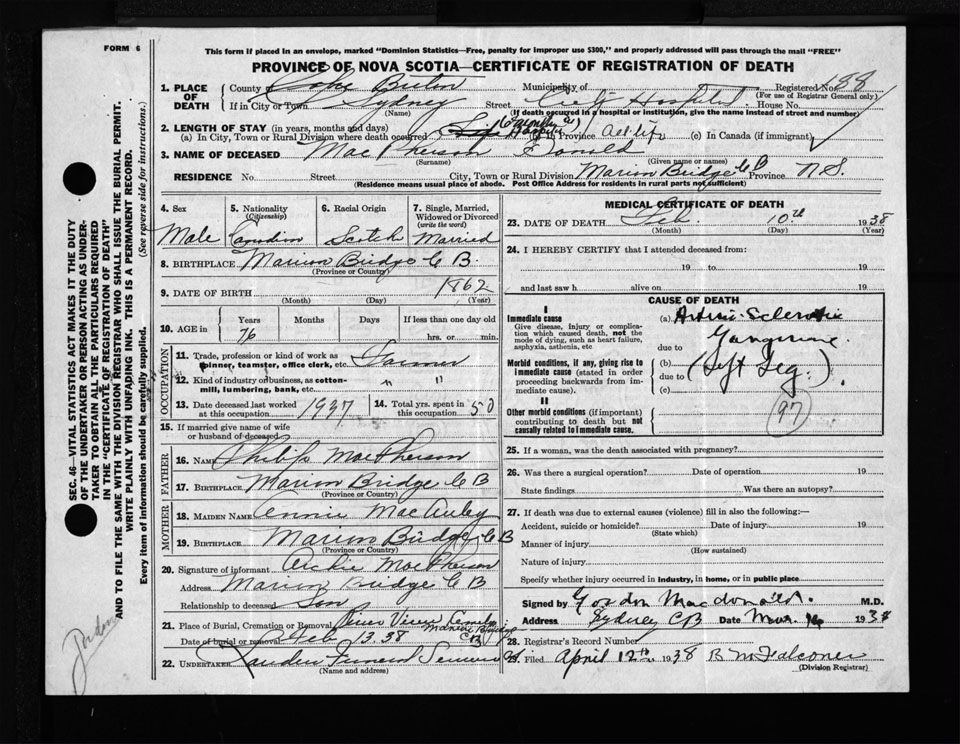 FORM 6
This form if placed in an envelope, marked "Dominion Statistics—Free, penalty for improper use $300," and properly addressed will pass through the mail "FREE"
PROVINCE OF NOVA SCOTIA—CERTIFICATE OF REGISTRATION OF DEATH
SEC. 46—VITAL STATISTICS ACT MAKES IT THE DUTY
OF THE UNDERTAKER OR PERSON ACTING AS UNDER-
TAKER TO OBTAIN ALL THE PARTICULARS REQUIRED
IN THE "CERTIFICATE OF REGISTRATION OF DEATH"
AND TO FILE THE SAME WITH THE DIVISION REGISTRAR WHO SHALL ISSUE THE BURIAL PERMIT.
WRITE PLAINLY WITH UNFADING INK. THIS IS A PERMANENT RECORD.
Every item of information should be carefully supplied. (See reverse side for instructions.)
1. PLACE OF DEATH County of Cape Breton Municipality of Registered No. 188
(For use of Registrar General only)
If in City or Town Sydney Street City Hospital House No.
(Name) (If death occurred in a hospital or institution, give the name instead of street and number)
2. LENGTH OF STAY (in years, months and days)
(a) In City, Town or Rural Division where death occurred Hospital (b) In Province all life (c) In Canada (if immigrant)
3. NAME OF DECEASED MacPherson Donald
(Surname) (Given name or names)
RESIDENCE No. Street City, Town or Rural Division Marion Bridge C B Province N.S.
(Residence means usual place of abode. Post Office Address for residents in rural parts not sufficient)
4. Sex 5. Nationality (Citizenship) 6. Racial Origin 7. Single, Married, Widowed or Divorced (write the word)
Male Canadian Scotch Married
8. BIRTHPLACE Marion Bridge C B.
(Province or Country)
9. DATE OF BIRTH 1862
(Month) (Day) (Year)
10. AGE in Years Months Days If less than one day old
76 hrs. or min.
OCCUPATION
11. Trade, profession or kind of work as spinner, teamster, office clerk, etc. Farmer
12. Kind of industry or business, as cotton-mill, lumbering, bank, etc. " "
13. Date deceased last worked at this occupation 1937 14. Total yrs. spent in this occupation 50
15. If married give name of wife or husband of deceased
FATHER
16. Name Philip MacPherson
17. Birthplace Marion Bridge C B
(Province or Country)
MOTHER
18. Maiden Name Annie MacAuley
19. Birthplace Marion Bridge C B
(Province or Country)
20. Signature of informant Archie MacPherson
Address Marion Bridge C B
Relationship to deceased Son
21. Place of Burial, Cremation or Removal View Marion Bridge C B
Date of burial or removal Feb 13. 38
22. Undertaker Funeral Service
(Name and address)
MEDICAL CERTIFICATE OF DEATH
23. DATE OF DEATH Feb. 10th 1938
(Month) (Day) (Year)
24. I HEREBY CERTIFY that I attended deceased from:
19 to 19
and last saw h alive on 19
CAUSE OF DEATH
I
Immediate cause
Give disease, injury or complication which caused death, not the mode of dying, such as heart failure, asphyxia, asthenia, etc
(a) Arterio-Sclerotic
due to Gangrene
Morbid conditions, if any, giving rise to immediate cause (stated in order proceeding backwards from immediate cause).
(b)
due to (Left Leg.)
(c)
II
Other morbid conditions (if important) contributing to death but not causally related to immediate cause.
97
25. If a woman, was the death associated with pregnancy?
26. Was there a surgical operation? Date of operation 19
State findings Was there an autopsy?
27. If death was due to external causes (violence) fill in also the following:—
Accident, suicide or homicide? Date of injury 19
(State which)
Manner of injury
(How sustained)
Nature of injury
Specify whether injury occurred in industry, in home, or in public place
Signed by Gordon Macdonald. M.D.
Address Sydney C B Date Mar. 1938
28. Registrar's Record Number
29. Filed April 12th 1938 B McFalconer
(Division Registrar)